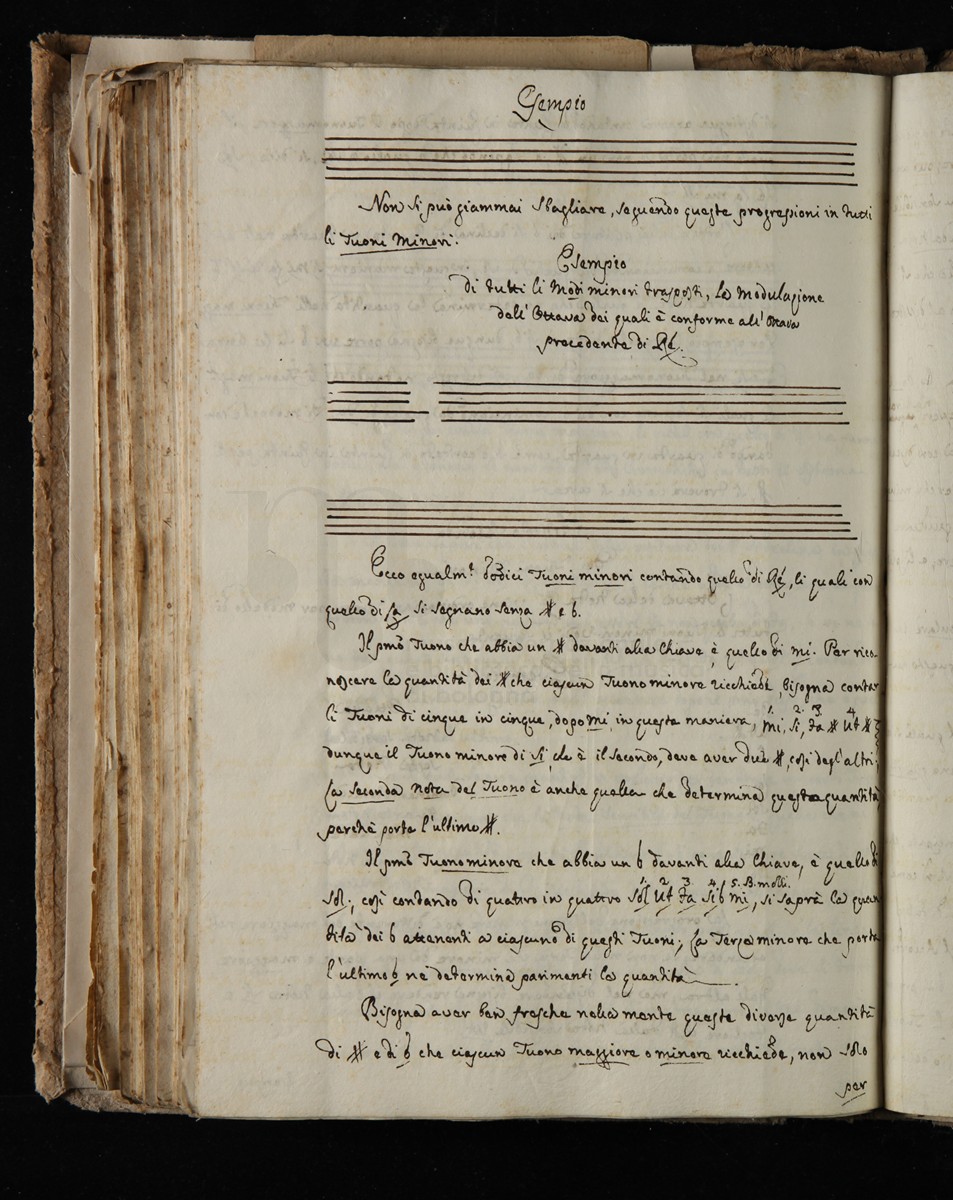 Esempio
Non si può giammai sbagliare, seguendo queste progressioni in tutti
li Tuoni Minori.
Esempio
di tutti li Modi minori trasposti, la Modulazione
dell'Ottava dei quali è conforme all'Ottava
precedente di Ré.
Ecco egualm.te dodici Tuoni minori contando quello di Ré, li quali con
quello di la si segnano senza # e b.
Il pmo Tuono che abbia un # davanti alla Chiave è quello di mi. Per rico-
noscere la quantità dei # che ciascun Tuono minore ricchiede, bisogna contar
li Tuoni di cinque in cinque, dopo mi, in questa maniera, 1. mi, 2. si, 3. fa # 4. Ut #
dunque il Tuono minore di si, che è il secondo, deve aver due #, così degl'altri;
la seconda nota del Tuono è anche quella che determina questa quantità
perchè porta l'ultimo #.
Il pmo Tuono minore che abbia un b davanti alla Chiave, è quello di
sol; così contando di quattro in quattro 1. sol 2 Ut 3. fa 4. si b 5. mi, B.molli. si saprà la quan
tità dei b attenenti a ciascuno di questi Tuoni; la Terza minore che porta
l'ultimo b ne determina parimenti la quantità.
Bisogna aver ben fresche nella mente queste diverse quantità
di # e di b che ciascun Tuono maggiore o minore ricchiede, non solo
per